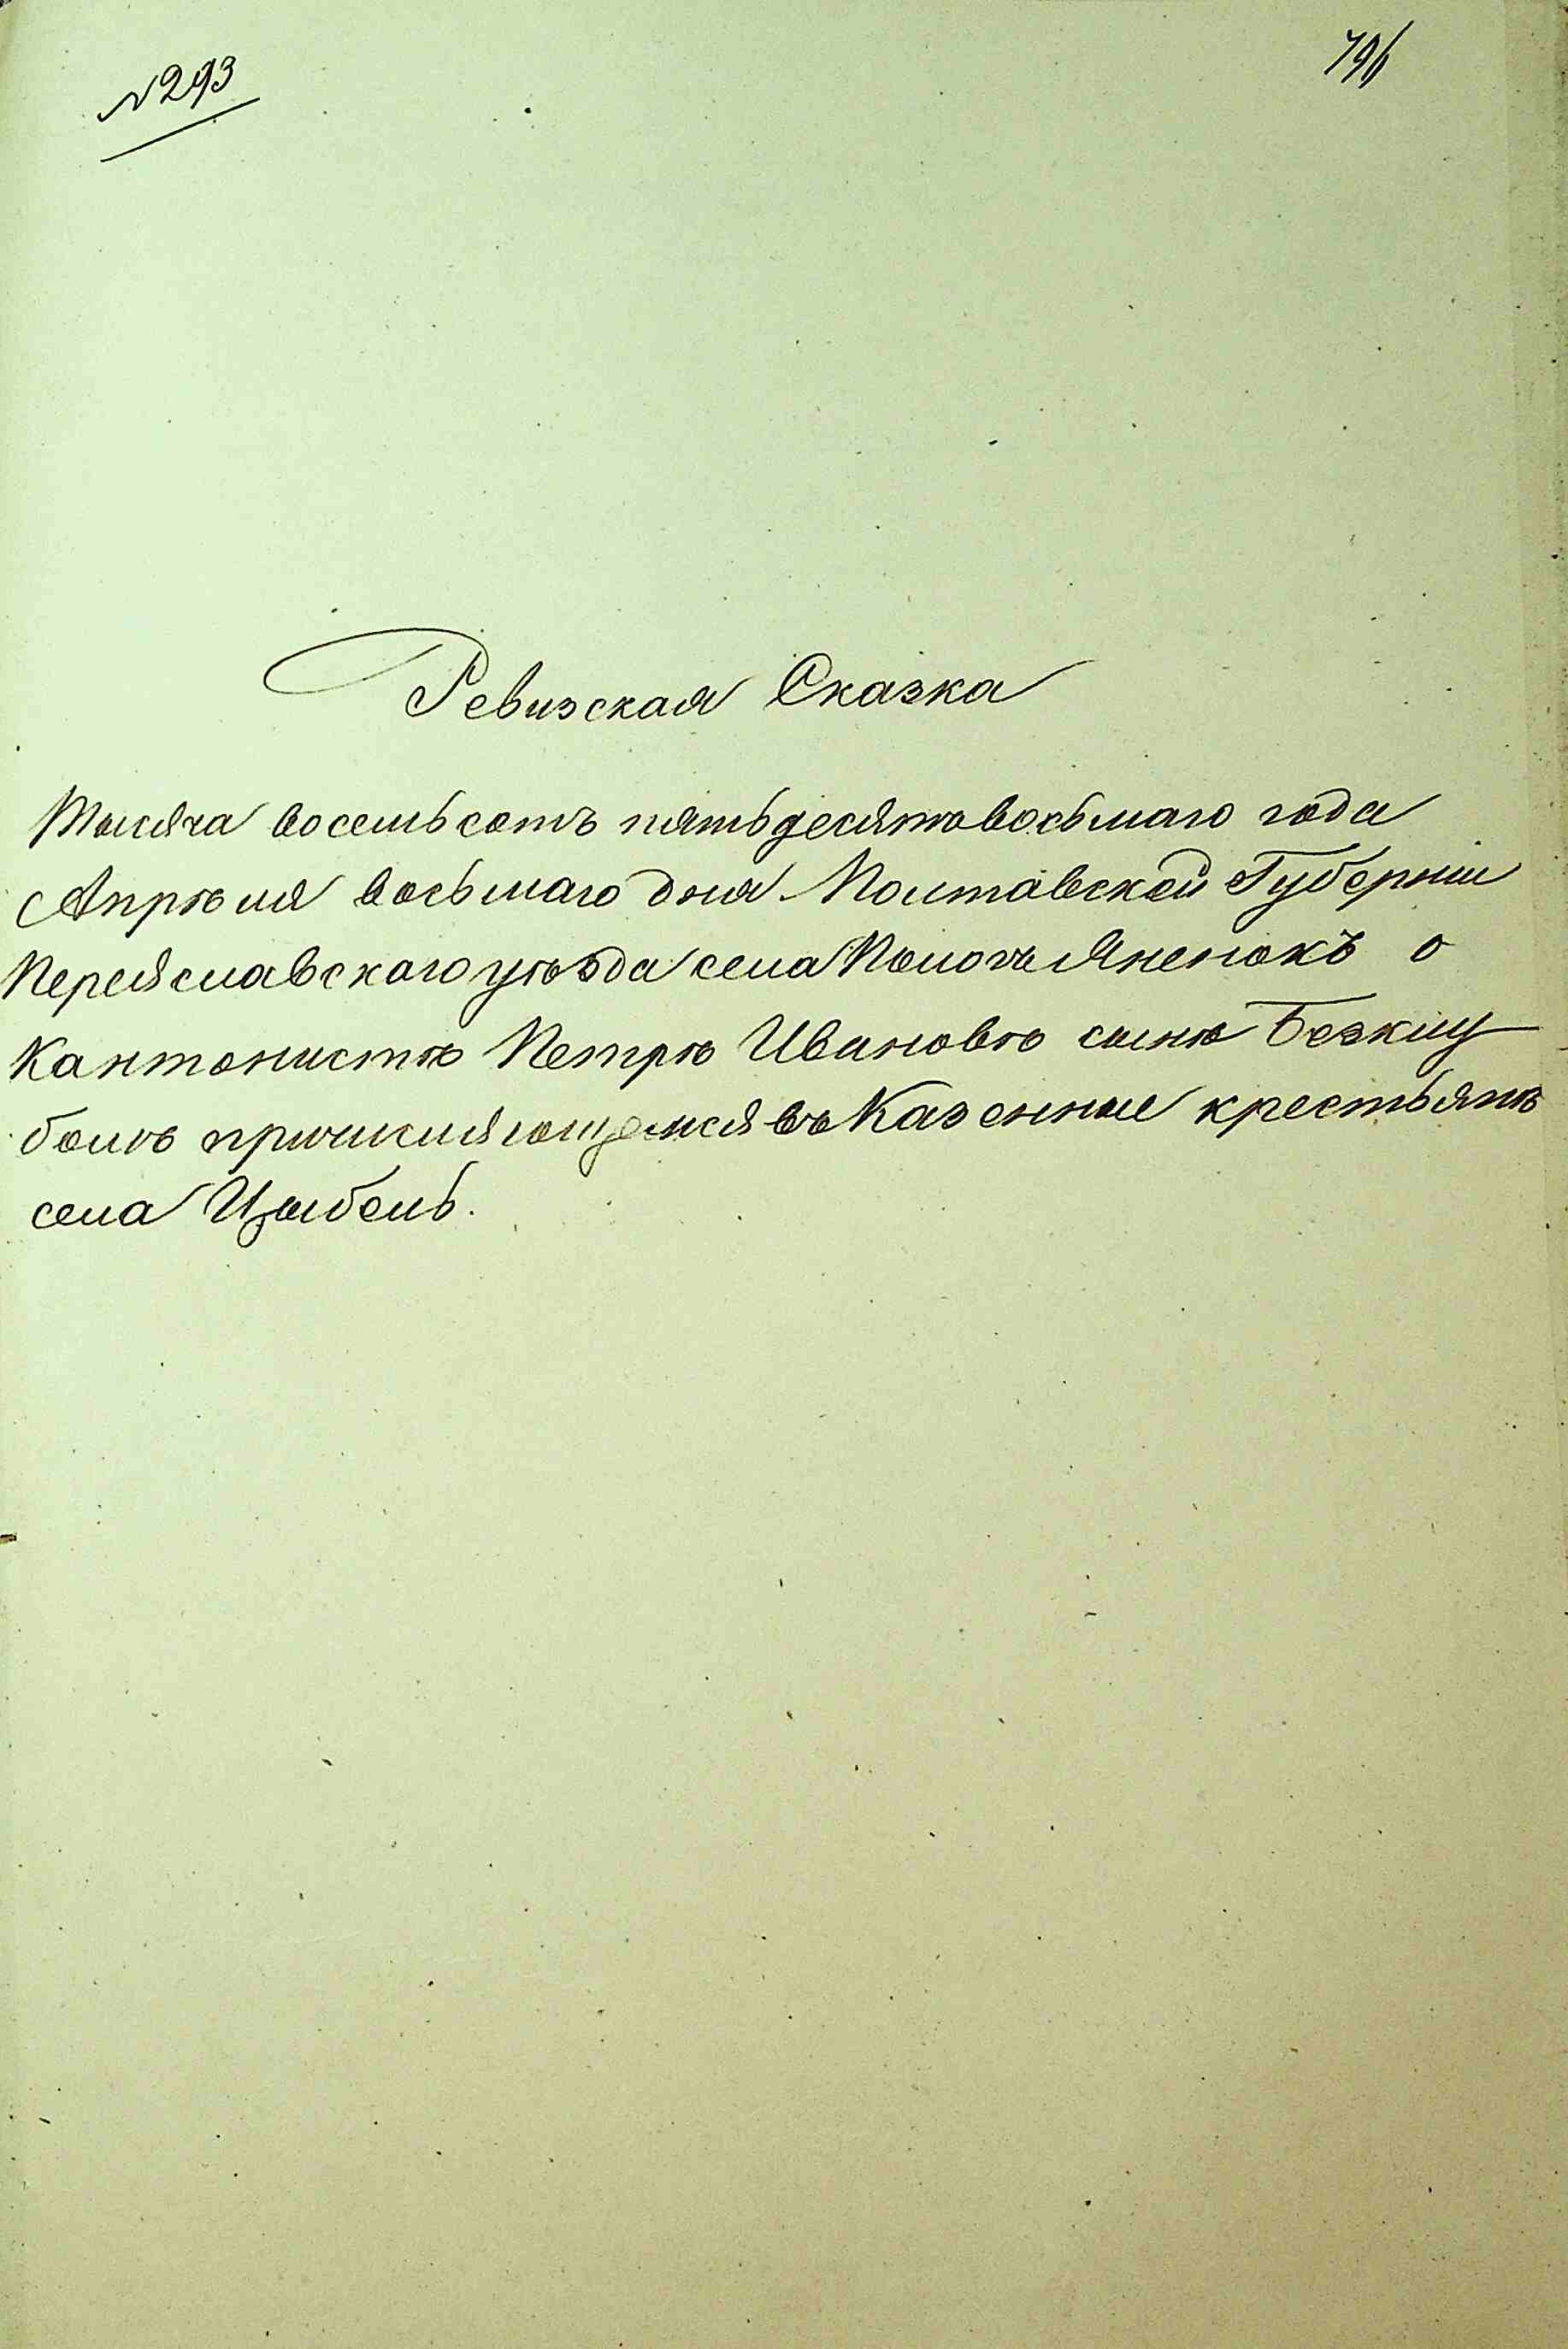 №293
796
Ревизская Сказка
Тысяча восемьсотъ пятьдесятовосьмаго года
Апрѣля восьмаго дня Полтавской Губерніи
Переяславскаго уѣзда села Помоклянекокъ о
Кантонистѣ Петрѣ Ивановѣ сынѣ
причисляющемся въ Казенные крестьянѣ
села Цыбель.